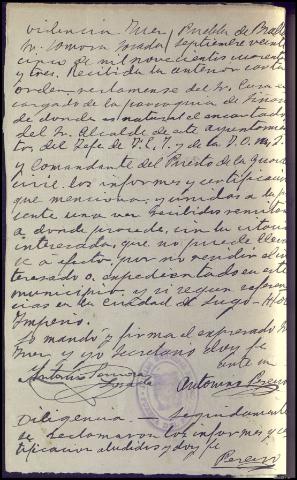 videncia Juez / Puebla de Broll
Sr. Zamora Losada / Septiembre veinti
cinco de mil novecientos cuarenta
y tres. Recibida la anterior carta
orden, reclamense del Sr. Cura en
cargado de la parroquia de
de donde es natural el encartado
del Sr. Alcalde de este ayuntamien
tos del Jefe de F.E.T. y de las J.O.N.S.
y Comandante del Puesto de la Guardia
civil los informes y certificacion
que menciona y unidas a la pre
sente una vez recibidos remitan
a donde procede, sin la citacion
interesada, que no puede llevar
se á efecto, por no residir el in
teresado o expedientado en este
municipio, y si segun referen
cias en la ciudad de Lugo
Imperio.
Lo mandó y firma el expresado Sr.
Juez, y yo Secretario doy fe
ante mi
Antonio Zamora
Losada
Antonino Pereiro
Diligencia - Seguidamente
se reclamaron los informes y cer
tificacion aludidos y doy fe
Pereiro